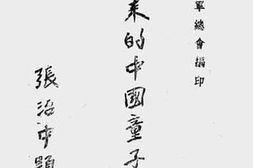 軍總會捐印
来的中國童子
張治中題